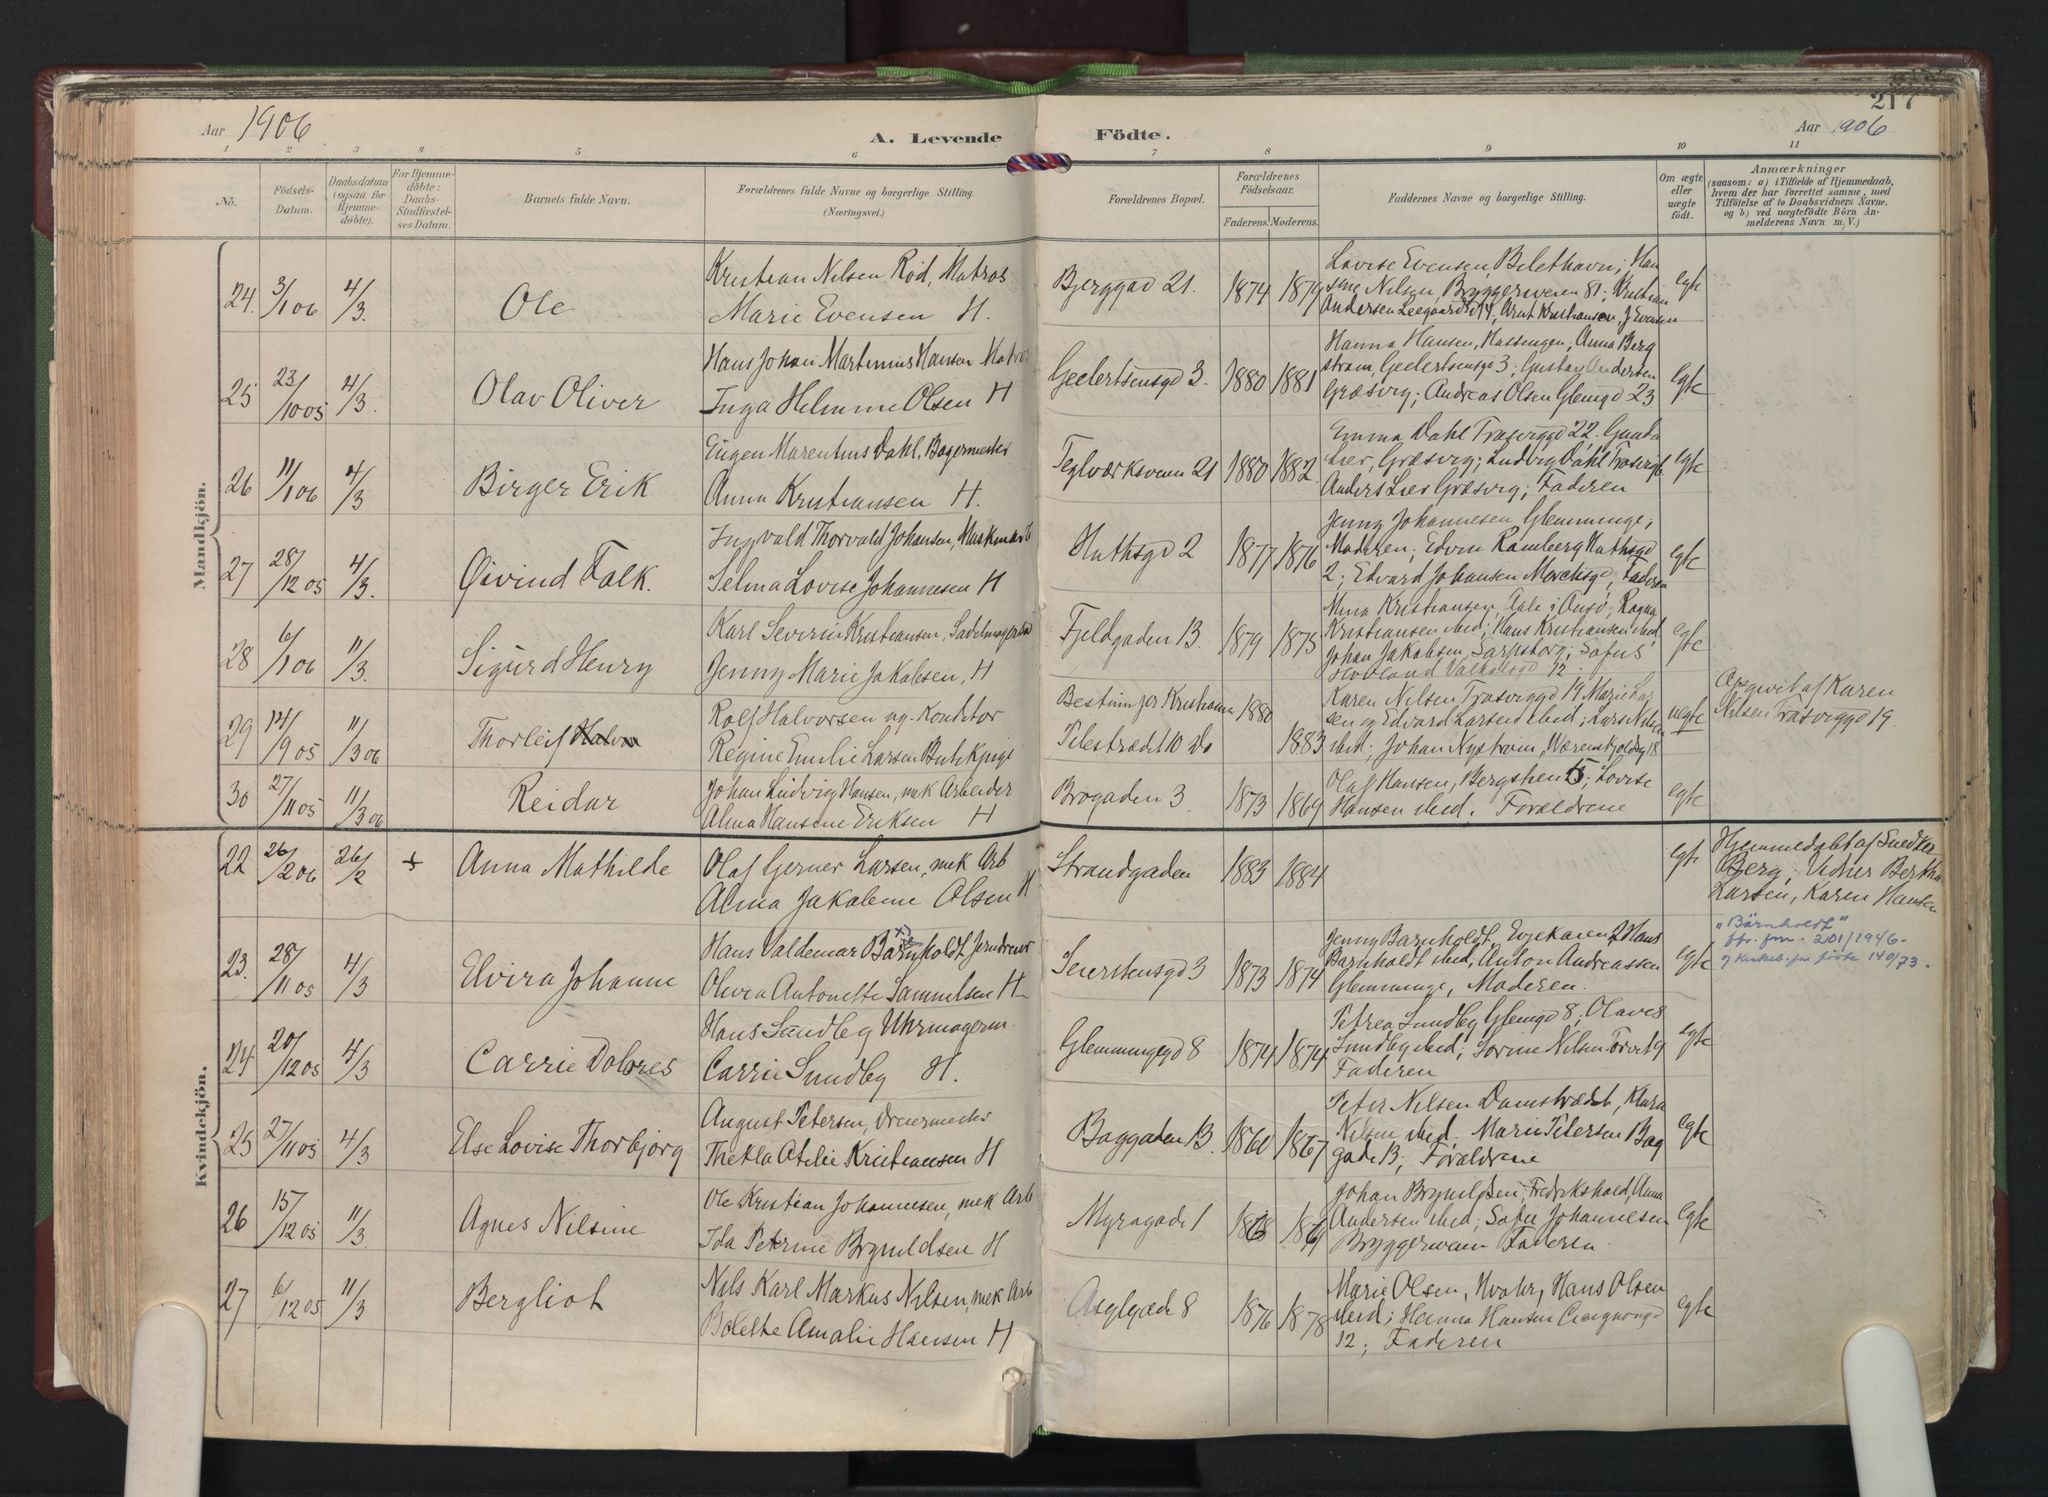 217
Aar 1906
A. Levende
Födte.
Aar 1906
1 2 3 4 5 6 7 8 9 10 11
No.
Födsels-
Datum.
Daabsdatum
(ogsaa for
Hjemme-
döbte).
For Hjemme-
döbte:
Daabs-
Stadfæstel-
ses Datum.
Barnets fulde Navn.
Forældrenes fulde Navne og borgerlige Stilling.
(Næringsvei.)
Forældrenes Bopæl.
Forældrenes
Födselsaar.
Faderens. Moderens.
Faddernes Navne og borgerlige Stilling.
Om ægte
eller
uægte
födt.
Anmærkninger
(saasom: a) i Tilfælde af Hjemmedaab,
hvem der har forrettet samme, med
Tilföielse af to Daabsvidners Navne,
og b) ved uægtefödte Börn An-
melderens Navn m. V.)
Mandkjön.
24. 3/1 06 4/3. Ole
Kristian Nilsen Röd, Matros
Marie Evensen H.
Bjerggad 21. 1874 1879
Lovise Evensen, Bilethavn; Han
sine Nilsen, Bryggerveien 81; Kristian
Andersen Leegaardsd 14, Arnt Kristiansen, J Evensen
egte
25 23/10 05 4/3. Olav Oliver
Hans Johan Martinius Hansen Matros
Inga Helmine Olsen H
Geelertsensgd 3. 1880 1881
Hanna Hansen, Hassengen, Anna Berg
strøm, Geelertsensgd 3; Gustav Andersen
Græsvig; Andreas Olsen Glemgd 23
egte
26 11/1 06 4/3 Birger Erik
Eugen Marentius Dahl, Bagermester
Anna Kristiansen H.
Teglværksveien 21 1880 1882.
Emma Dahl Trasviggd 22. Gunda
Lier, Græsvig; Ludvig Dahl Trasvigb
Anders Lier Græsvig; Faderen
egte
27 28/12 05 4/3. Øivind Falk.
Ingvald Thorvald Johansen, Maskinarb
Selma Lovise Johannesen H
Huthsgd 2 1877 1876
Jenny Johannesen Glemminge;
Moderen; Edvin Ramberg Huthsgd
2; Edvard Johansen Mørchsgd, Faderen
egte
28 6/1 06 11/3. Sigurd Henry
Karl Severin Kristiansen, Sadelmagersv
Jenny Marie Jakobsen, H
Fjeldgaden 13. 1879 1875
Mina Kristiansen, Aale i Onsö; Ragna
Kristiansen ibid; Hans Kristiansen ibid,
Johan Jakobsen, Sarpsborg; Sofus
egte
29 14/9 05 11/3 06 Thorleif Halvor
Rolf Halvorsen ug. Konditor
Regine Emilie Larsen Butikpige
Bestum per Kristiania 1880
Pilestrædet 10 do 1883
Karen Nilsen, Trasviggd 19, Marie Lar
sen og Edvard Larsen ibid; Lars Nilsen
ibid; Johan Nystrøm, Værenskjoldsg 18
uegte
Opgivet af Karen
Nilsen Trasviggd 19.
30 27/11 05 11/3 06 Reidar
Johan Ludvig Hansen, mek Arbeider
Alma Hansine Eriksen H
Brogaden 3. 1873 1869
Olaf Hansen, Bergslien 15; Lovise
Hansen ibid. Forældrene
egte
Kvindekjön.
22 26/2 06 26/2 + Anna Mathilde
Olaf Gerner Larsen, mek Arb
Alma Jakobine Olsen H
Strandgaden 1883 1884
egte
Hjemmedøbt af Snedker
Berg; Vidner Bertha
Larsen, Karen Hansen
23. 28/11 05 4/3 Elvira Johanne
Hans Valdemar Barnholdt Jerndreier
Olivia Antonette Samuelsen H
Seierstensgd 3 1873 1874
Jenny Barnholdt, Evjekaien 2 Hans
Barnholdt ibid, Anton Andreassen
Glemminge, Moderen.
egte
„Bärnholdt"
ffr. frm. 201/1946.
24 20/12 05 4/3 Carrie Dolores
Hans Sundby Uhrmagerm.
Carrie Sundby H.
Glemmingegd 8 1874 1874
Petrea Sundby Glemgd 8, Olaves
Sundby ibid; Sorine Nilsen Torvet 9
Faderen
egte
25 27/11 05 4/3 Else Lovise Thorbjörg
August Petersen, Dreiermester
Thekla Otelie Kristiansen H
Baggaden 13. 1860 1867
Peter Nilsen Damstrædet, Klara
Nilsen ibid. Marie Petersen Bag
gade 13; Forældrene
egte
26 15/12 05 11/3. Agnes Nilsine
Ole Kristian Johannesen, mek Arb
Ida Petrine Brynildsen H
Myragade 1 1868 1869
Johan Brynildsen, Fredrikshald, Anna
Andersen ibid; Sofie Johannesen
Bryggerveien Faderen.
egte
27 6/12 05 11/3 Bergliot
Nils Karl Markus Nilsen, mek Arb
Bolette Amalie Hansen H
8 1876 1878
Marie Olsen, Hvaler, Hans Olsen
ibid; Hanna Hansen
12; Faderen
egte